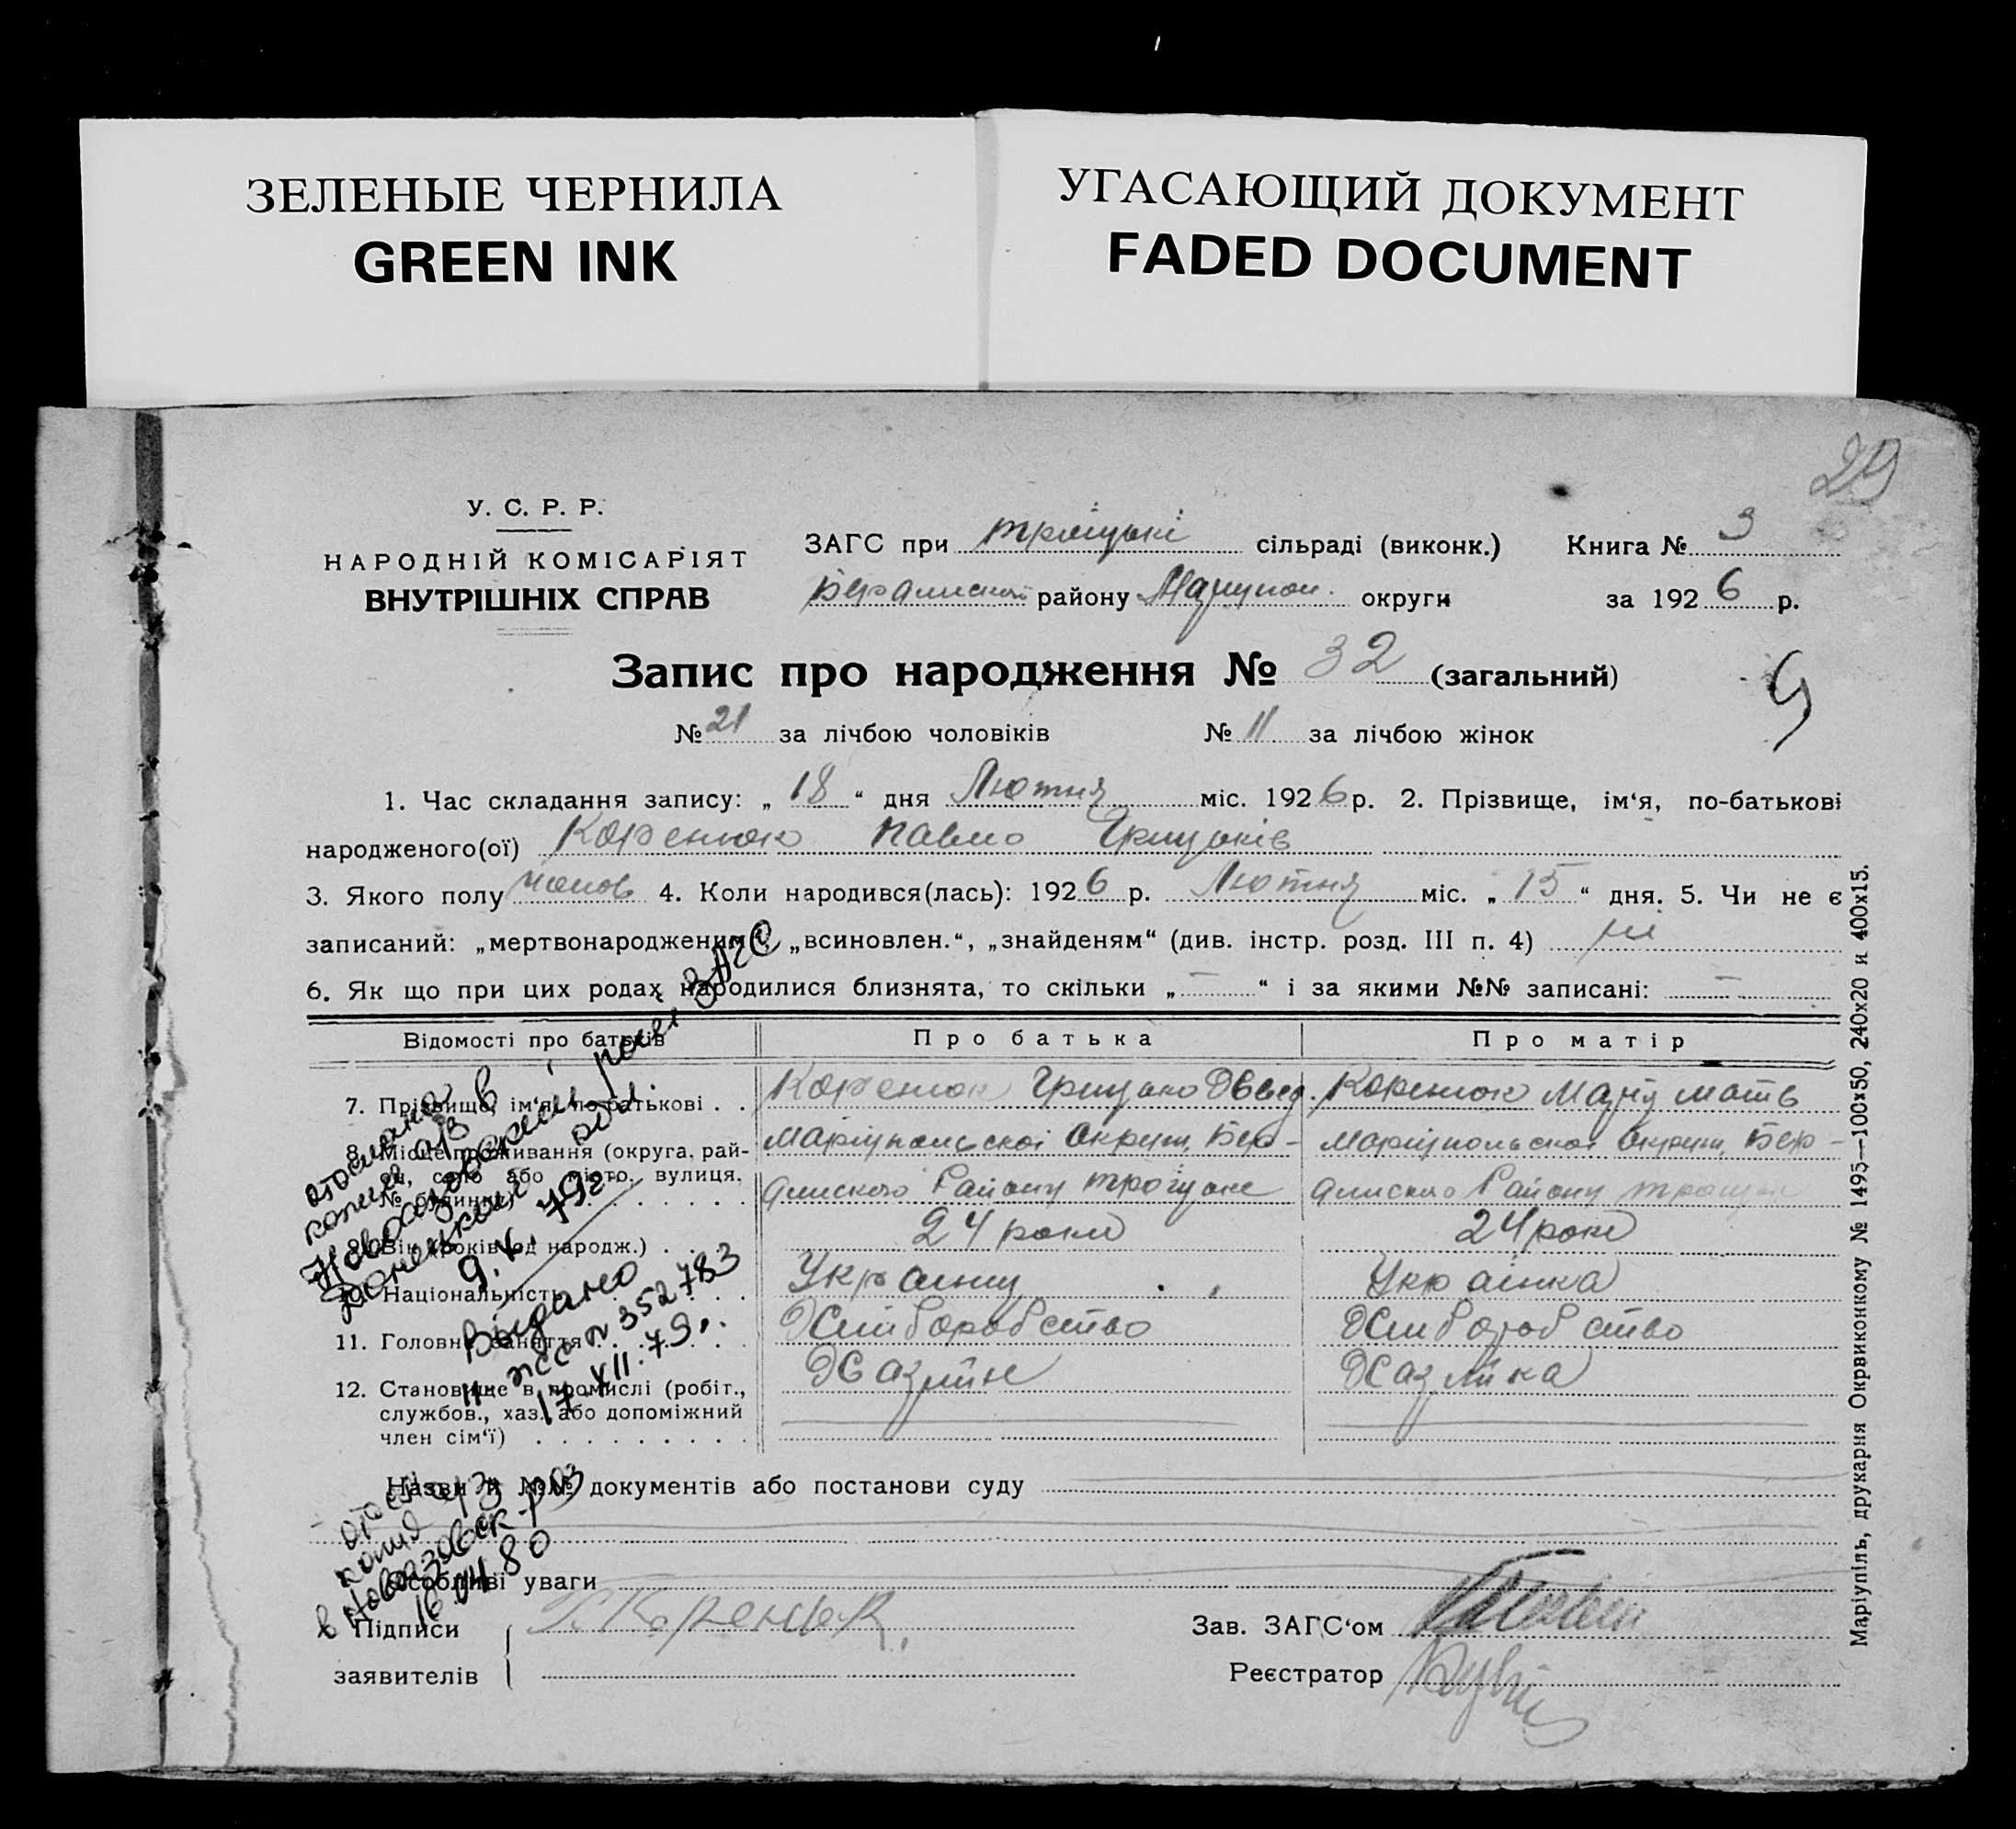 ЗЕЛЕНЫЕ ЧЕРНИЛА
GREEN INK
УГАСАЮЩИЙ ДОКУМЕНТ
FADED DOCUMENT
29
У. С. Р. Р.
НАРОДНІЙ КОМІСАРІЯТ
ВНУТРІШНІХ СПРАВ
ЗАГС при троіцькі сільраді (виконк.) Книга № 3
району Маріупол. округи за 1926 р.
Запис про народження № 32 (загальний)
№ 21 за лічбою чоловіків № 11 за лічбою жінок
1. Час складання запису: „ 18 “ дня Лютня міс. 1926 р. 2. Прізвище, ім‘я, по-батькові
народженого(ої) Коренюк Павло Грицьків
3. Якого полу чолов 4. Коли народився(лась): 1926 р. Лютня міс. „ 15 “ дня. 5. Чи не є
записаний: „мертвонародженим“, „всиновлен.“, „знайденям“ (див. інстр. розд. III п. 4) ні
6. Як що при цих родах народилися близнята, то скільки „ — “ і за якими №№ записані: —
Відомості про батьків Про батька Про матір
7. Прізвище, ім‘я, по-батькові . . Коренюк Грицько Коренюк Марія
8. Місце проживання (округа, рай- Маріупольскоі Округи, Бер- Маріупольскоі Округи, Бер-
он, село або місто, вулиця, Району Району
№ будинку)
9. Вік (років од народж.) . . 24 роки 24 роки
10. Національність Украинц Украінка
11. Головне заняття Хліборобство Хліборобство
12. Становище в промислі (робіт., Хазяїн Хазяйка
службов., хаз. або допоміжний
член сім‘ї)
Назви й №№ документів або постанови суду
Особливі уваги
Підписи Коренюк. Зав. ЗАГС‘ом
заявителів Реєстратор
отослана
копия а/з в
Новоазовский рай ЗАГС
Донецкой обл.
9.X.79г
Видано
н. жс № 352783
17.XII.79г.
копия а/з
в Новоазовск р-н
16.04.80
Маріупіль, друкарня Окрвиконкому № 1495—100x50, 240x20 и 400x15.